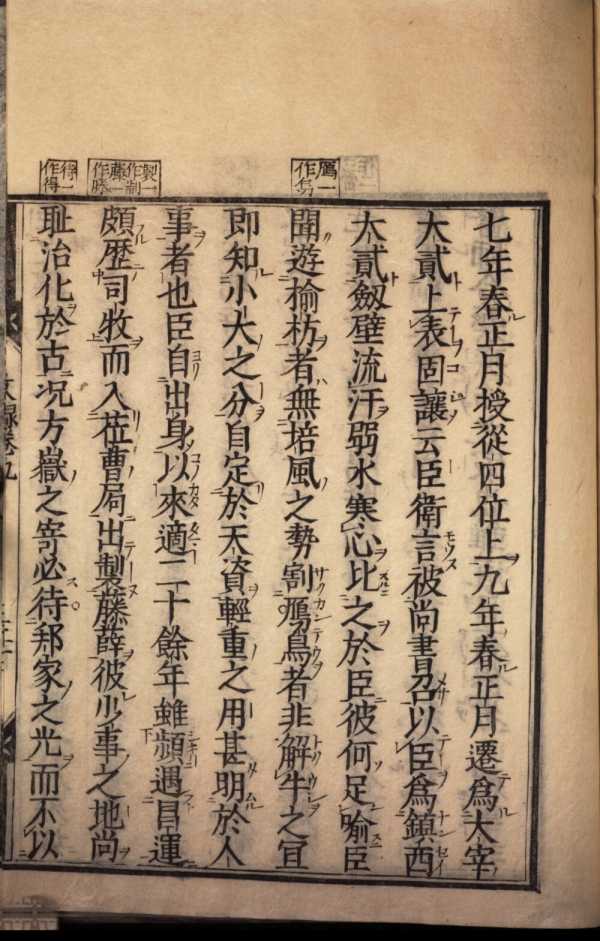 鴈一
作烏
製一
作制
藤一
作滕
七年春正月授從四位上九年春正月遷爲大宰
大貳上表固讓云臣衛言被尚書召以臣爲鎮西
大貳劔壁流汗弱水寒心比之於臣彼何足喻臣
聞遊榆枋者無培風之勢割鴈鳥者非解牛之宜
即知小大之分自定於天資輕重之用甚明於人
事者也臣自出身以來適二十餘年雖頻遇昌運
頗歴司牧而入莅曹局出製藤薛彼少事之地尚
耻治化於古况方嶽之寄必待邦家之光而不以